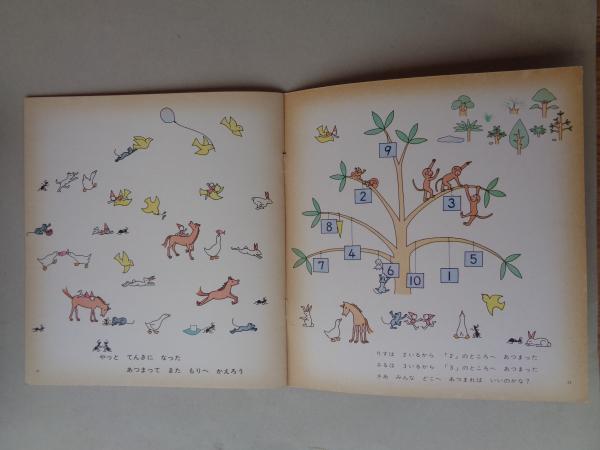 やっと てんきに なった
あつまって また もりへ かえろう
9
2
3
8
4
7
6
10
1
5
りすは 2いるから 「2」のところへ あつまった
さるは 3いるから 「3」のところへ あつまった
さあ みんな どこへ あつまれば いいのかな?